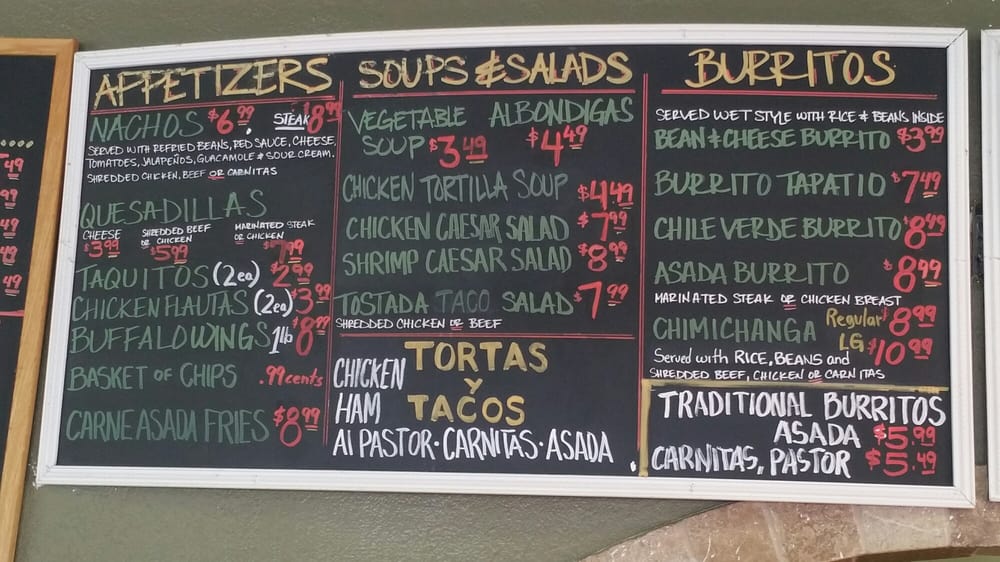 APPETIZERS
NACHOS $6.99 STEAK 8.99
SERVED WITH REFRIED BEANS, RED SAUCE, CHEESE,
TOMATOES, JALAPEÑOS, GUACAMOLE & SOUR CREAM.
SHREDDED CHICKEN, BEEF OR CARNITAS
QUESADILLAS
CHEESE $3.99
SHREDDED BEEF OR CHICKEN $5.99
MARINATED STEAK OR CHICKEN $7.99
TAQUITOS (2ea) $2.99
CHICKEN FLAUTAS (2ea) $3.99
BUFFALO WINGS 1lb $8.99
BASKET OF CHIPS .99 cents
CARNE ASADA FRIES $8.99
SOUPS & SALADS
VEGETABLE SOUP $3.49
ALBONDIGAS $4.49
CHICKEN TORTILLA SOUP $4.49
CHICKEN CAESAR SALAD $7.99
SHRIMP CAESAR SALAD $8.99
TOSTADA TACO SALAD $7.99
SHREDDED CHICKEN OR BEEF
TORTAS
Y
TACOS
CHICKEN
HAM
Al PASTOR · CARNITAS · ASADA
BURRITOS
SERVED WET STYLE WITH RICE & BEANS INSIDE
BEAN & CHEESE BURRITO $3.99
BURRITO TAPATIO $7.49
CHILE VERDE BURRITO $8.49
ASADA BURRITO $8.99
MARINATED STEAK OR CHICKEN BREAST
CHIMICHANGA Regular $8.99
LG $10.99
Served with RICE, BEANS and
SHREDDED BEEF, CHICKEN OR CARNITAS
TRADITIONAL BURRITOS
ASADA $5.99
CARNITAS, PASTOR $5.49
49
99
49
49
49